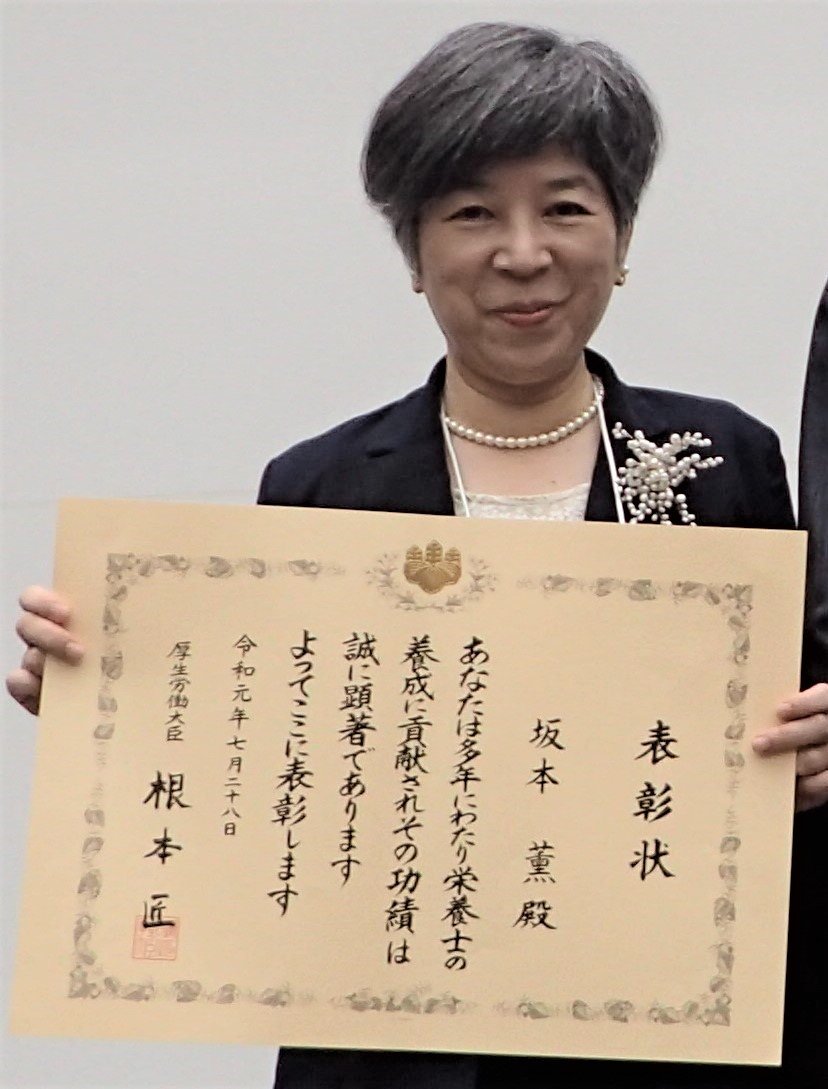 表彰状
坂本 薫 殿
あなたは多年にわたり栄養士の
養成に貢献されその功績は
誠に顕著であります
よってここに表彰します
令和元年七月二十八日
厚生労働大臣 根本匠